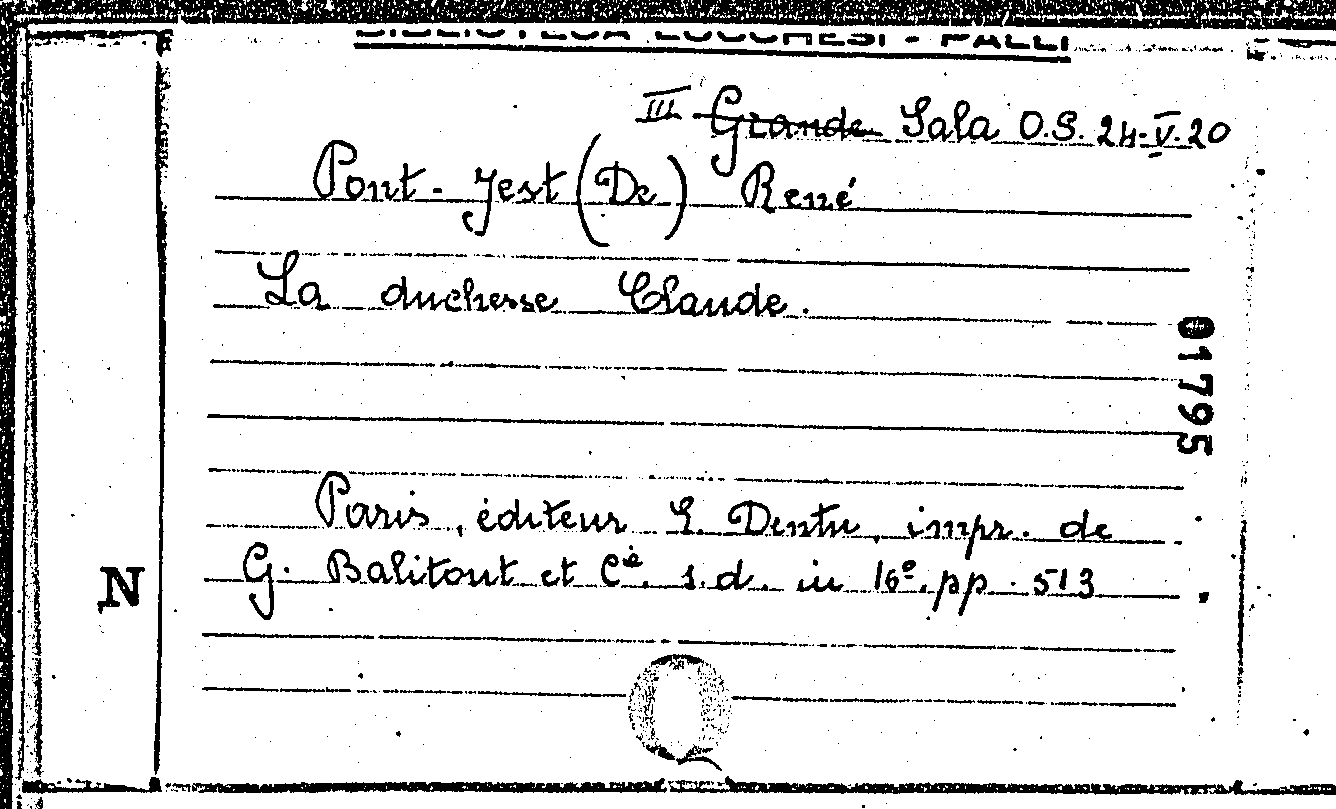 BIBLIOTECA LUCCHESI - PALLI
III Grande Sala O.S. 24-V.20
Pont-Jest (De) René
La duchesse Claude.
01795
Paris, éditeur E. Dentu, impr. de
G. Balitout et Cie. s.d. in 16º. pp. 513
N